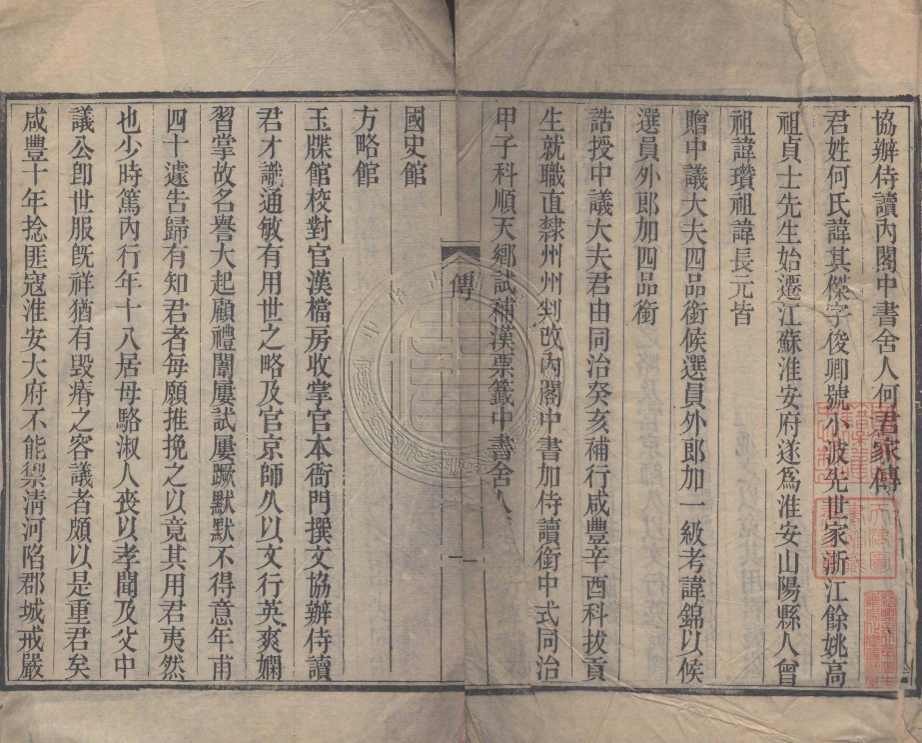 協辦侍讀內閣中書舍人何君家傳
君姓何氏諱其傑字俊卿號小波先世家浙江餘姚高
祖貞士先生始遷江蘇淮安府遂為淮安山陽縣人曾
祖諱瓚祖諱長元皆
贈中議大夫四品銜候選員外郎加一級考諱錦以候
選員外郎加四品銜
誥授中議大夫君由同治癸亥補行咸豐辛酉科拔貢
生就職直隸州州判改內閣中書加侍讀銜中式同治
甲子科順天鄉試補漢票籤中書舍人
傳
一
國史館
方略館
玉牒館校對官漢檔房收掌官本衙門撰文協辦侍讀
君才識通敏有用世之略及官京師久以文行英爽嫻
習掌故名譽大起顧禮闈屢試屢蹶默默不得意年甫
四十遽告歸有知君者每願推挽之以竟其用君夷然
也少時篤內行年十八居母駱淑人喪以孝聞及父中
議公卽世服旣祥猶有毀瘠之容議者頗以是重君矣
咸豐十年捻匪寇淮安大府不能禦清河陷郡城戒嚴